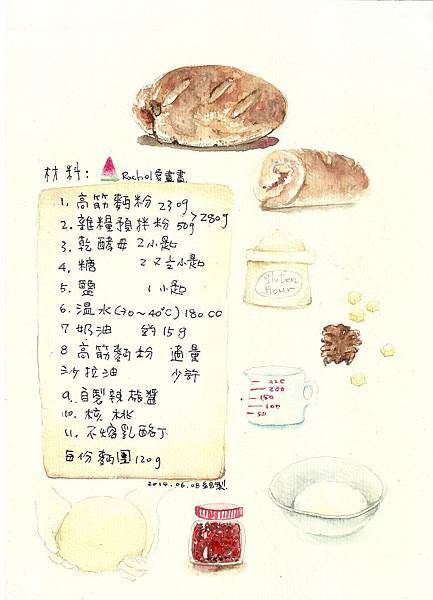 材料:
Rachel愛畫畫
1. 高筋麵粉 230g
2. 雜糧預拌粉 50g >280g
3. 乾酵母 2小匙
4. 糖 2又1/2小匙
5. 鹽 1小匙
6. 溫水(30~40°C) 180cc
7 奶油 約15g
8 高筋麵粉 適量
沙拉油 少許
9. 自製辣椒醬
10. 核桃
11. 不熔乳酪丁
每份麵團120g
2014.06.08
gluten
flour
225
200
150
100
50